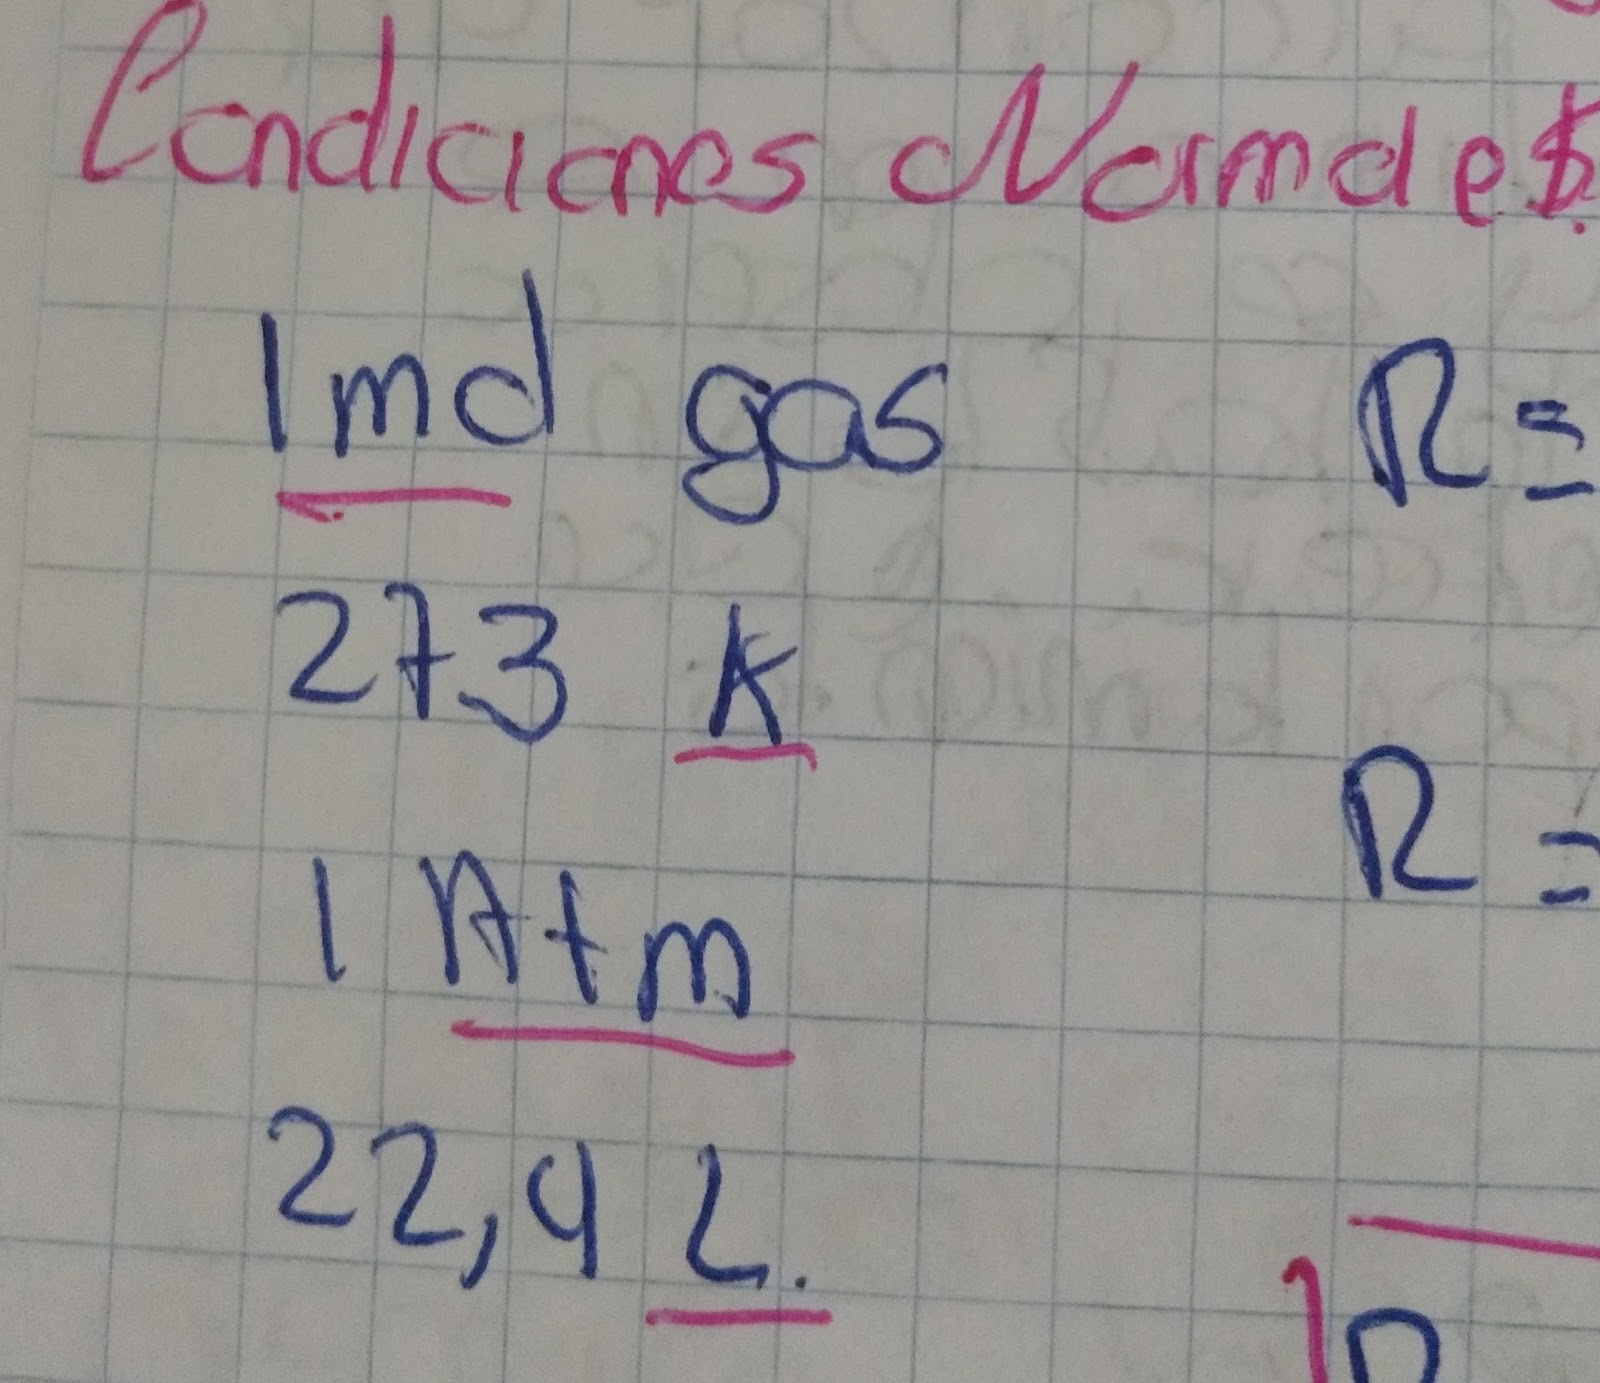 Condiciones Normales
1 mol gas R=
273 K
R=
1 Atm
22,4 L.